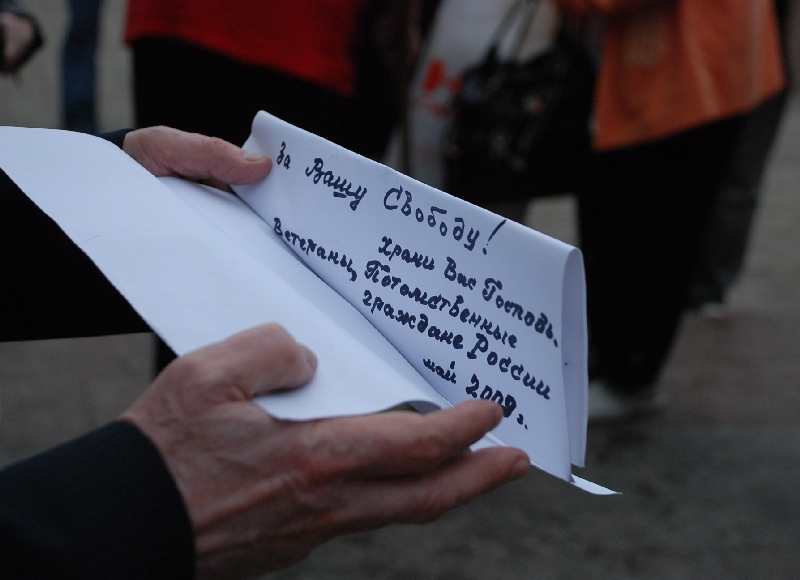 За Вашу Свободу!
Храни Вас Господь.
Ветераны, Потомственные
граждане России
май 2009 г.